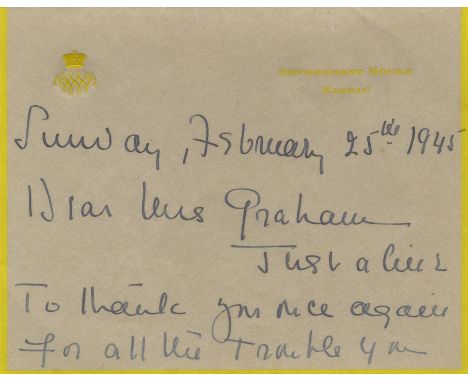 GOVERNMENT HOUSE
NASSAU
Sunday, February 25th 1945
Dear Mrs Graham
Just a line
To thank you once again
for all the trouble you